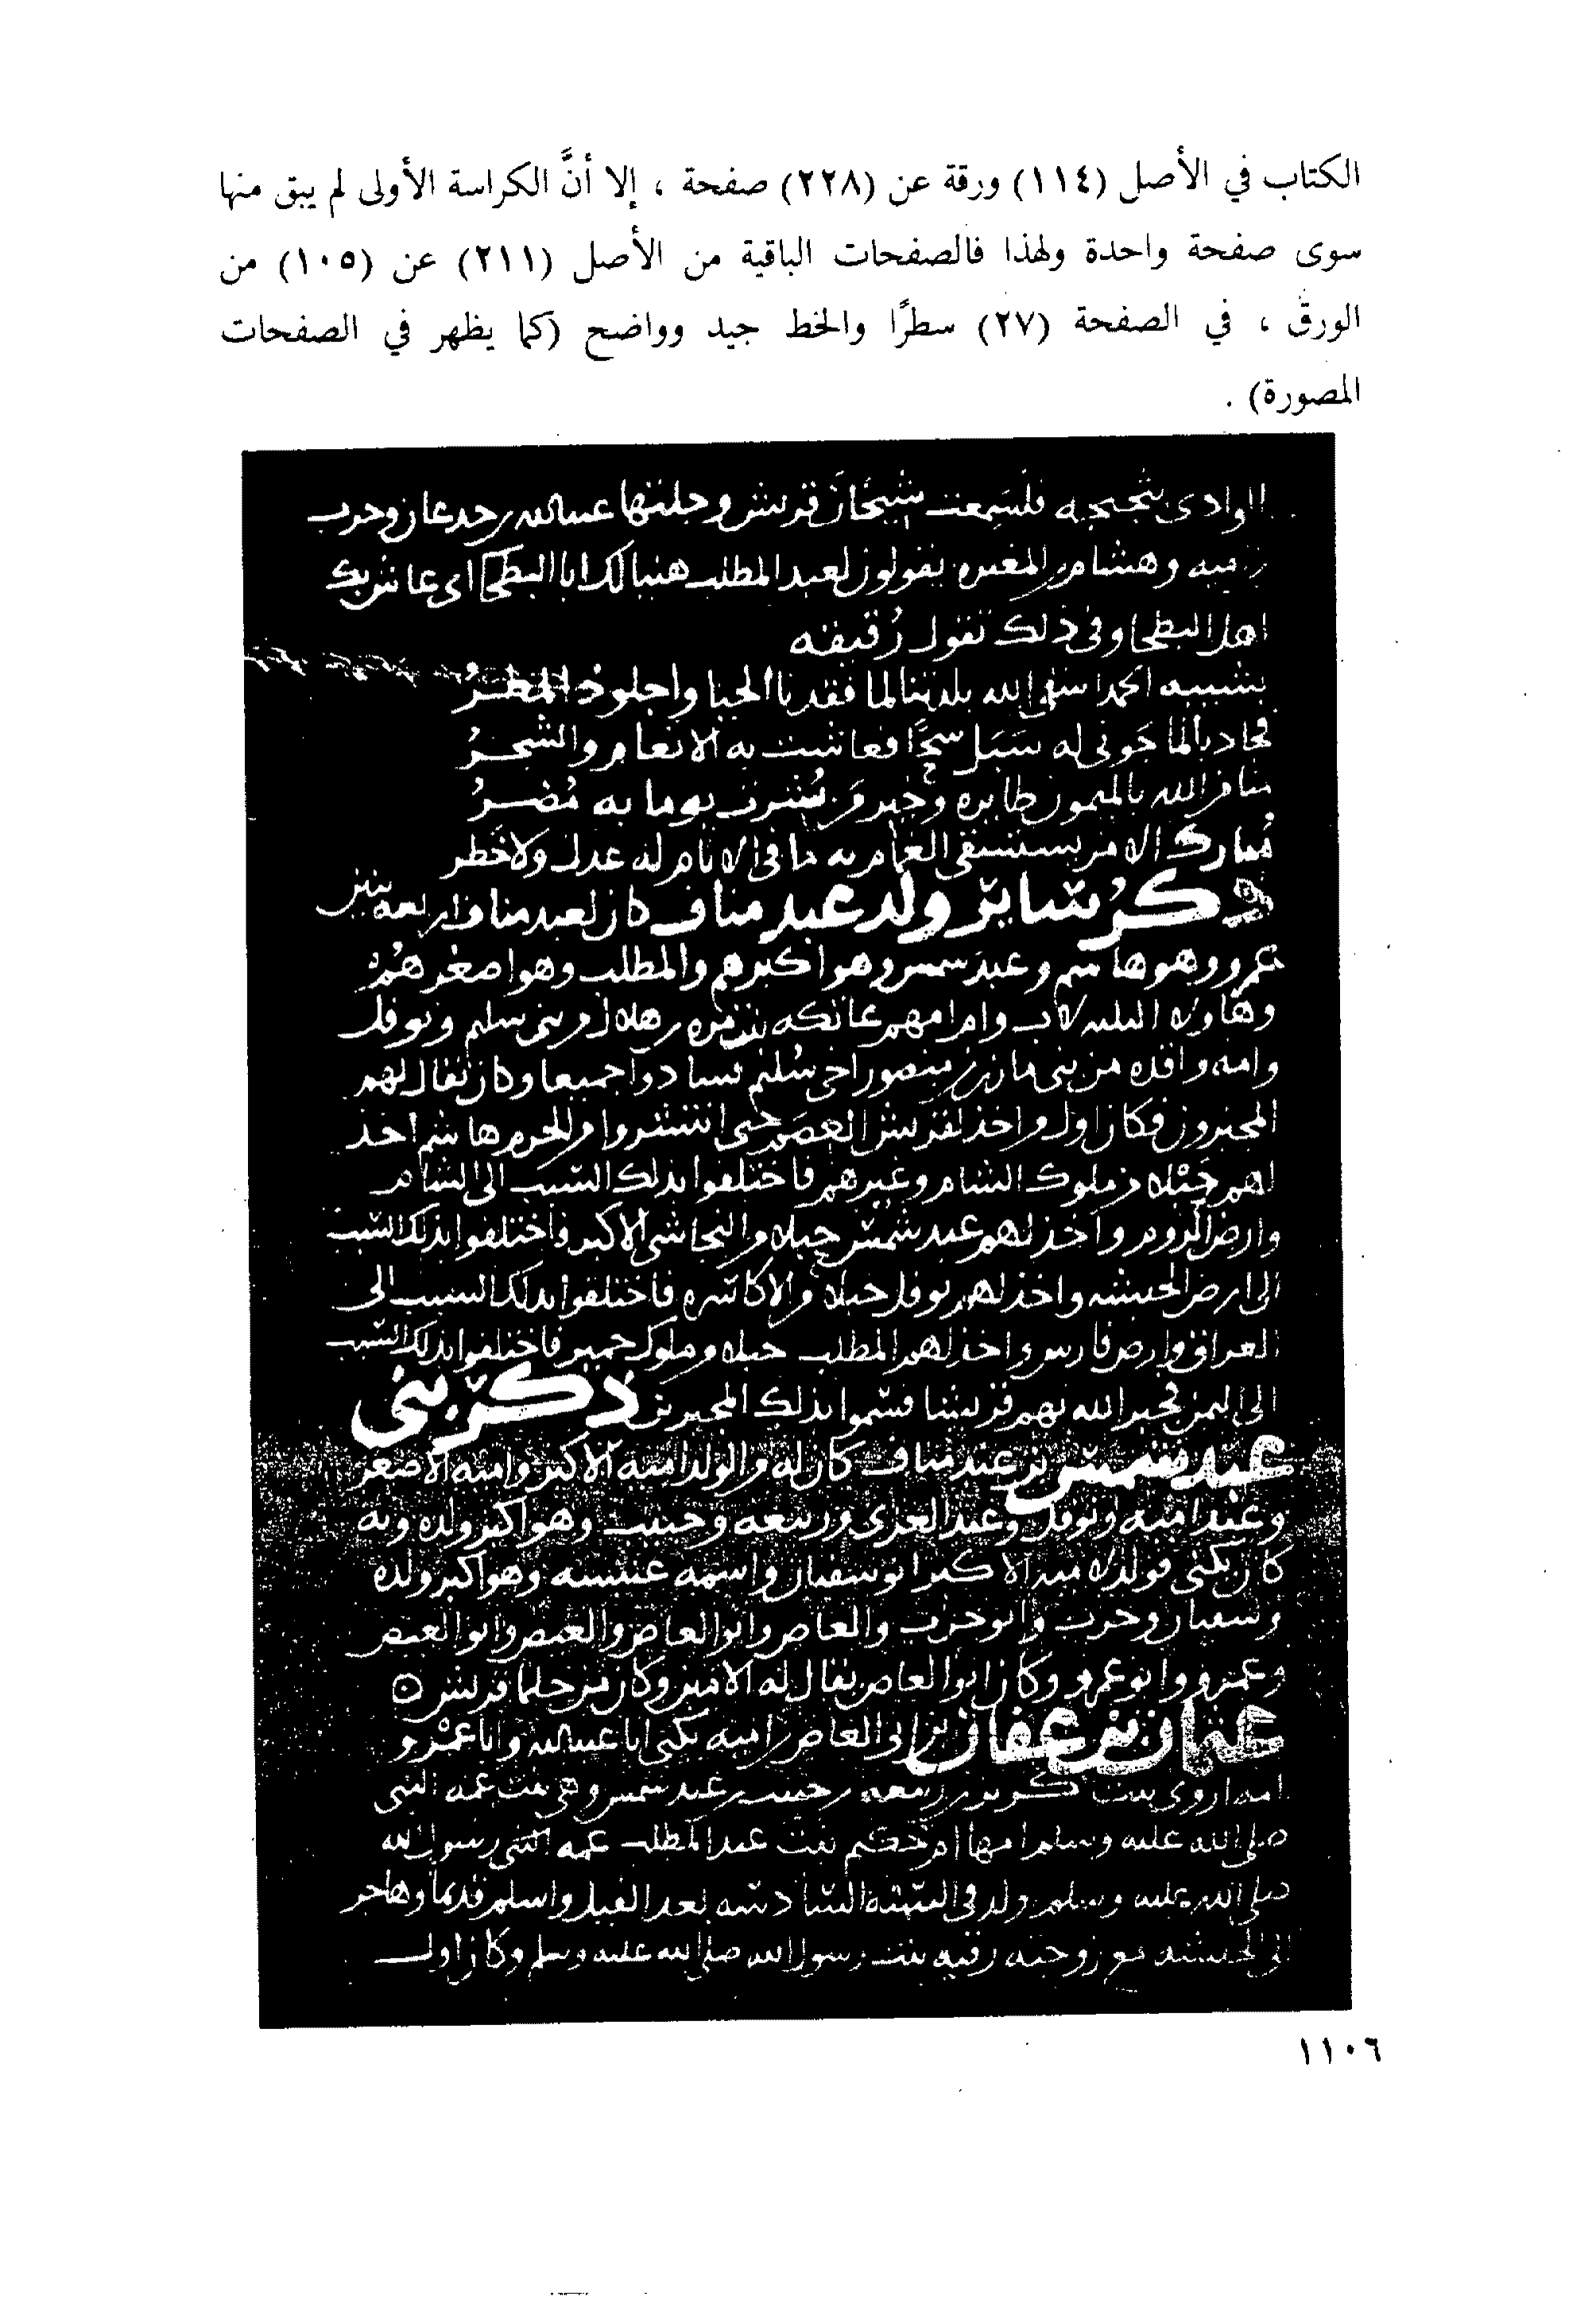 الكتاب في الأصل (١١٤) ورقة عن (٢٢٨) صفحة ، إلا أنَّ الكراسة الأولى لم يبق منها
سوى صفحة واحدة ولهذا فالصفحات الباقية من الأصل (٢١١) عن (١٠٥) من
الورق ، في الصفحة (٢٧) سطرًا والخط جيد وواضح (كما يظهر في الصفحات
المصورة) .
الوادى بثجيجه فلسمعت شيخان قريش وجلتها عبدالله بن جدعان وحرب
بن اميه وهشام بن المغيره يقولون لعبد المطلب هنيا لك ابا البطحا اى عاش بك
اهل البطحا وفى ذلك تقول رُقيقه
بشيبه الحمد اسقى الله بلدتنا لما فقدنا الحيا واجلوذ المطرُ
فجاد بالما جونى له سَبَل سحًا فعاشت به الانعام والشجرُ
منا من الله بالميمون طايره وخير من بُشرت يوما به مُضرُ
مُبارك الامر يستسقى الغمام به ما فى الانام له عدل ولا خطر
ذكرُ ساير ولد عبد مناف كان لعبد مناف اربعه بنين
عمرو وهو هاشم وعبد شمس وهو اكبرهم والمطلب وهو اصغرهم
وهاولاء الثلثه لاب وام امهم عاتكه بنت مره بن هلال من بنى سليم ونوفل
وامه واقده من بنى مازن بن منصور اخى سُليم فسادوا جميعا وكان يقال لهم
المجبرون فكان اول من اخذ لقريش العصم حتى انتشروا من الحرم هاشم اخذ
لهم حبلا من ملوك الشام وغيرهم فاختلفوا بذلك السبب الى الشام
وارض الروم واخذ لهم عبد شمس حبلا من النجاشى الاكبر فاختلفوا بذلك السبب
الى ارض الحبشه واخذ لهم نوفل حبلا من الاكاسره فاختلفوا بذلك السبب الى
العراق وارض فارس واخذ لهم المطلب حبلا من ملوك حمير فاختلفوا بذلك السبب
الى اليمن فجبر الله بهم قريشا فسُموا بذلك المجبرين ذكر بنى
عبد شمس بن عبد مناف كان له من الولد اميه الاكبر واميه الاصغر
وعبد اميه ونوفل وعبد العزى وربيعه وحبيب وهو اكبر ولده وبه
كان يكنى فولد اميه الاكبر ابو سفيان واسمه عنبسه وهو اكبر ولده
وسفيان وحرب وابو حرب والعاص وابو العاص والعيص وابو العيص
وعمرو وابو عمرو وكان ابو العاص يقال له الامين وكان من حلما قريش
عثمان بن عفان بن ابى العاص بن اميه يكنى ابا عبدالله وابا عمْرو
امه اروى بنت كريز بن ربيعه بن حبيب بن عبد شمس وهى بنت عمه النبى
صلى الله عليه وسلم امها ام حكيم بنت عبد المطلب عمه النبى رسول الله
صلى الله عليه وسلم ولد فى السنه السادسه بعد الفيل واسلم قديما وهاجر
الى الحبشه مع زوجته رقيه بنت رسول الله صلى الله عليه وسلم وكان اول
١١٠٦